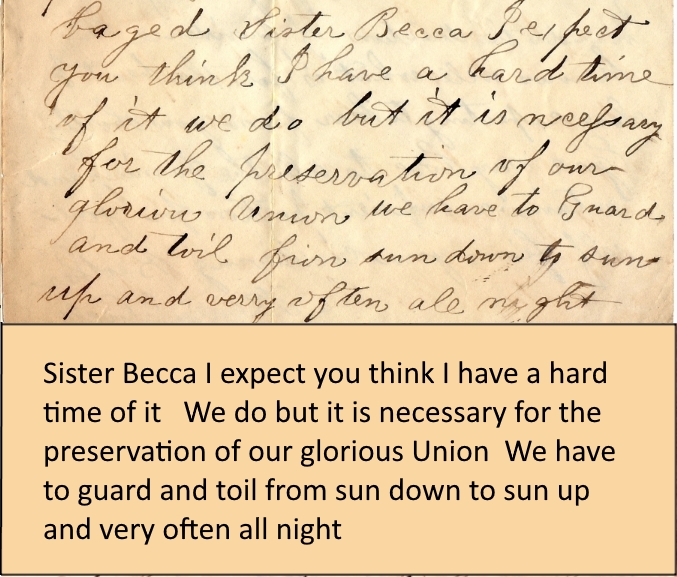 baged Sister Becca I expect
you think I have a hard time
of it we do but it is necessary
for the preservation of our
gloriou Union we have to Guard
and toil from sun down to sun
up and verry often ale night
Sister Becca I expect you think I have a hard
time of it We do but it is necessary for the
preservation of our glorious Union We have
to guard and toil from sun down to sun up
and very often all night